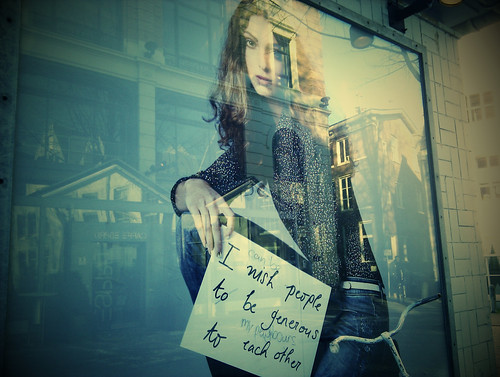 I wish people
to be generous
to each other